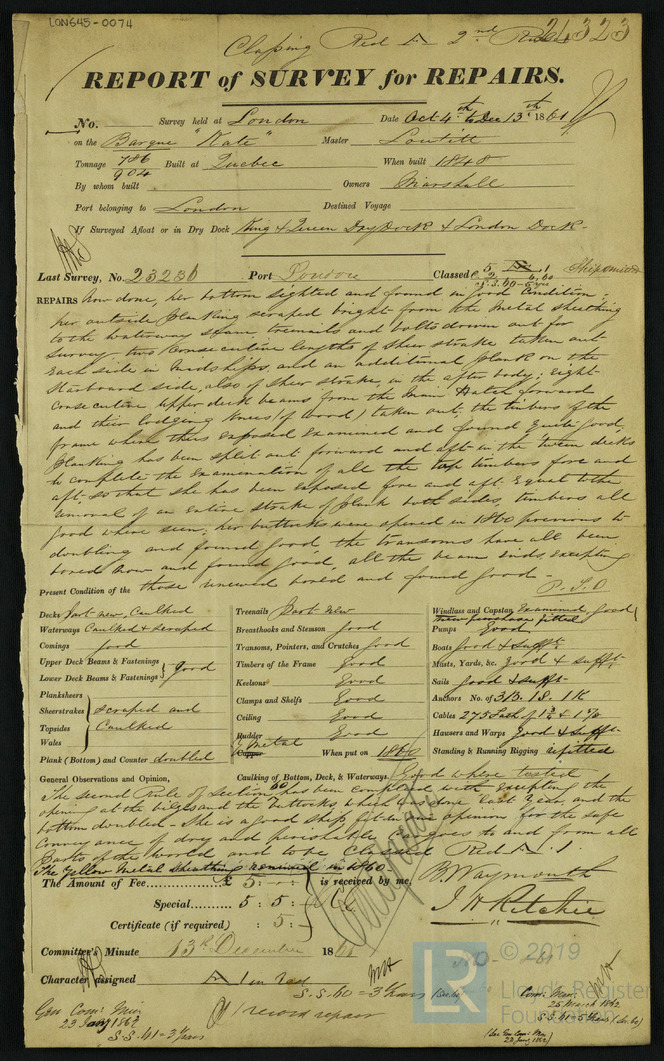 LON645-0074
Classing Red A 2nd Rule
24323
REPORT of SURVEY for REPAIRS.
No. Survey held at London Date Oct 4th to Dec 13th 1861
on the Barque "Kate" Master Loutitt
Tonnage 786 904 Built at Quebec When built 1848
By whom built Owners Marshall
Port belonging to London Destined Voyage
If Surveyed Afloat or in Dry Dock King & Queen Dry Dock & London Dock
Last Survey, No. 23236 Port London Classed
REPAIRS Now done, her bottom sighted and found in good condition;
her outside planking scraped bright from the metal sheathing
to the waterway seam treenails and bolts driven out for
survey two consecutive lengths of sheer strake taken out
each side in midships, and an additional plank on the
starboard side, also of sheer strake, in the after body; eight
consecutive upper deck beams from the main hatch forward
and their lodging knees (of wood) taken out; the timbers of the
frame when thus exposed examined and found quite good,
planking has been split out forward and aft in the 'tween decks
to complete the examination of all the top timbers fore and
aft, so that she has been exposed fore and aft equal to the
removal of an entire strake of plank both sides, timbers all
good where seen; her buttocks were opened in 1860 previous to
doubling and found good the transoms have all been
bored now and found good, all the beam ends, excepting
Present Condition of the those renewed bored and found good - P.T.O
Decks Part new, Caulked
Waterways Caulked & scraped
Comings good
Upper Deck Beams & Fastenings
Lower Deck Beams & Fastenings } good
Planksheers
Sheerstrakes
Topsides
Wales
} Scraped and Caulked
Plank (Bottom) and Counter doubled
Treenails Part new
Breasthooks and Stemson good
Transoms, Pointers, and Crutches good
Timbers of the Frame Good
Keelsons Good
Clamps and Shelfs Good
Ceiling Good
Rudder Good
Y Metal
Copper When put on 1860
Windlass and Capstan Examined good
new purchase fitted
Pumps Good
Boats good & sufft
Masts, Yards, &c. good & sufft
Sails good & sufft
Anchors No. of 3 B. 1 S. 1 K
Cables
Hawsers and Warps Good & sufft
Standing & Running Rigging refitted
General Observations and Opinion, Caulking of Bottom, Deck, & Waterways. Good where tested
The second Rule of Section 60 has been complied with excepting the
opening at the bilges and the buttocks, which was done last year, and the
bottom doubled - She is a good ship fit in our opinion for the safe
conveyance of dry and perishable cargoes to and from all
Parts of the world and to be Classed Red A.1.
The Yellow Metal sheathing renewed in 1860.
The Amount of Fee £ 5 : - : - is received by me,
Special 5 : 5 :
Certificate (if required) : 5 :
B. Waymouth
J H Ritchie
Committee's Minute 13th December 1861
Character assigned A 1 in Red
S.S. 60 = 3 Years
Gen Com: Min:
23 Jany 1862
S.S. 61 = 3 Years
A 1 record repair
Com: Min:
25 March 1862
S.S. 61 = 5 Years (Sec. 60)
(See Gen Com: Min:
23 Jany 1862)
LR
© 2019
Lloyd's Register
Foundation